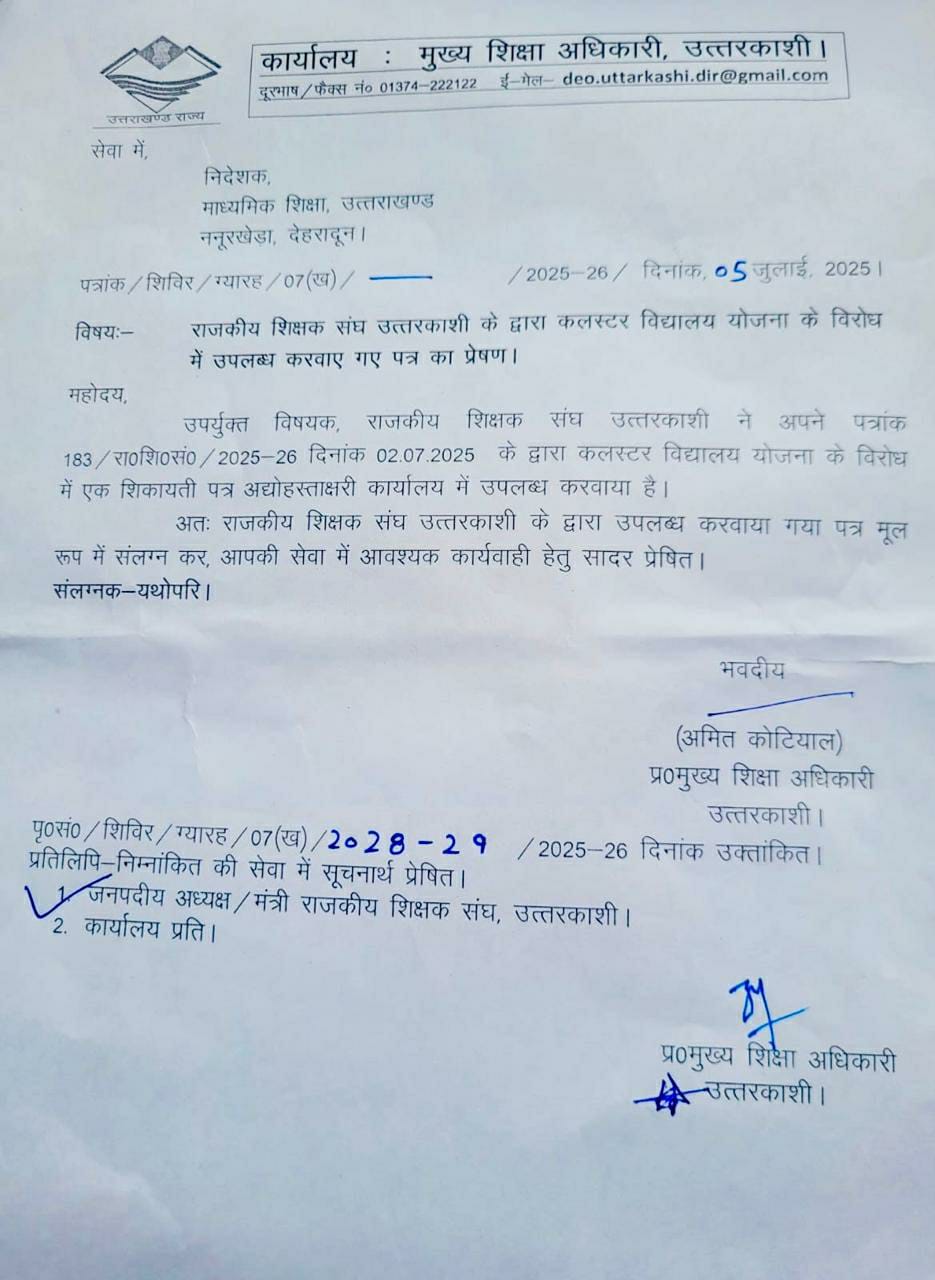 कार्यालय : मुख्य शिक्षा अधिकारी, उत्तरकाशी।
दूरभाष/फैक्स नं० 01374-222122 ई-मेल- deo.uttarkashi.dir@gmail.com
उत्तराखण्ड राज्य
सेवा में,
निदेशक,
माध्यमिक शिक्षा, उत्तराखण्ड
ननूरखेड़ा, देहरादून।
पत्रांक/शिविर/ग्यारह/07(ख)/ — /2025-26/ दिनांक, 05 जुलाई, 2025।
विषयः- राजकीय शिक्षक संघ उत्तरकाशी के द्वारा कलस्टर विद्यालय योजना के विरोध
में उपलब्ध करवाए गए पत्र का प्रेषण।
महोदय,
उपर्युक्त विषयक, राजकीय शिक्षक संघ उत्तरकाशी ने अपने पत्रांक
183/रा0शि0सं0/2025-26 दिनांक 02.07.2025 के द्वारा कलस्टर विद्यालय योजना के विरोध
में एक शिकायती पत्र अद्योहस्ताक्षरी कार्यालय में उपलब्ध करवाया है।
अतः राजकीय शिक्षक संघ उत्तरकाशी के द्वारा उपलब्ध करवाया गया पत्र मूल
रूप में संलग्न कर, आपकी सेवा में आवश्यक कार्यवाही हेतु सादर प्रेषित।
संलग्नक-यथोपरि।
भवदीय
(अमित कोटियाल)
प्र0मुख्य शिक्षा अधिकारी
उत्तरकाशी।
पृ0सं0/शिविर/ग्यारह/07(ख)/2028-29 /2025-26 दिनांक उक्तांकित।
प्रतिलिपि-निम्नांकित की सेवा में सूचनार्थ प्रेषित।
1. जनपदीय अध्यक्ष/मंत्री राजकीय शिक्षक संघ, उत्तरकाशी।
2. कार्यालय प्रति।
प्र0मुख्य शिक्षा अधिकारी
उत्तरकाशी।